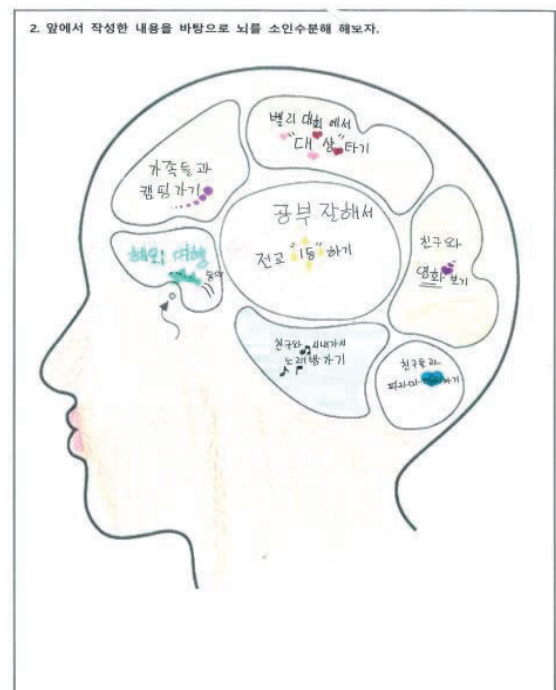 2. 앞에서 작성한 내용을 바탕으로 뇌를 소인수분해 해보자.
벨리 대회에서
"대상" 타기
가족들과
캠핑가기
공부 잘해서
전교 "1등" 하기
해외 여행
친구와
영화 보기
친구와 시내가서
노래방가기
친구들과
파자마 하기